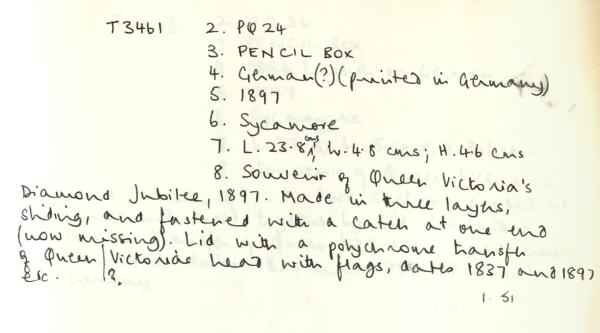 T3461 2. PQ 24
3. PENCIL BOX
4. German (?) (printed in Germany)
5. 1897
6. Sycamore
7. L. 23.8 cms, W. 4.8 cms; H. 4.6 cms
8. Souvenir of Queen Victoria's
Diamond Jubilee, 1897. Made in three layers,
sliding, and fastened with a catch at one end
(now missing). Lid with a polychrome transfer
of Queen Victorias head with flags, dates 1837 and 1897
etc. ?.
1. 51